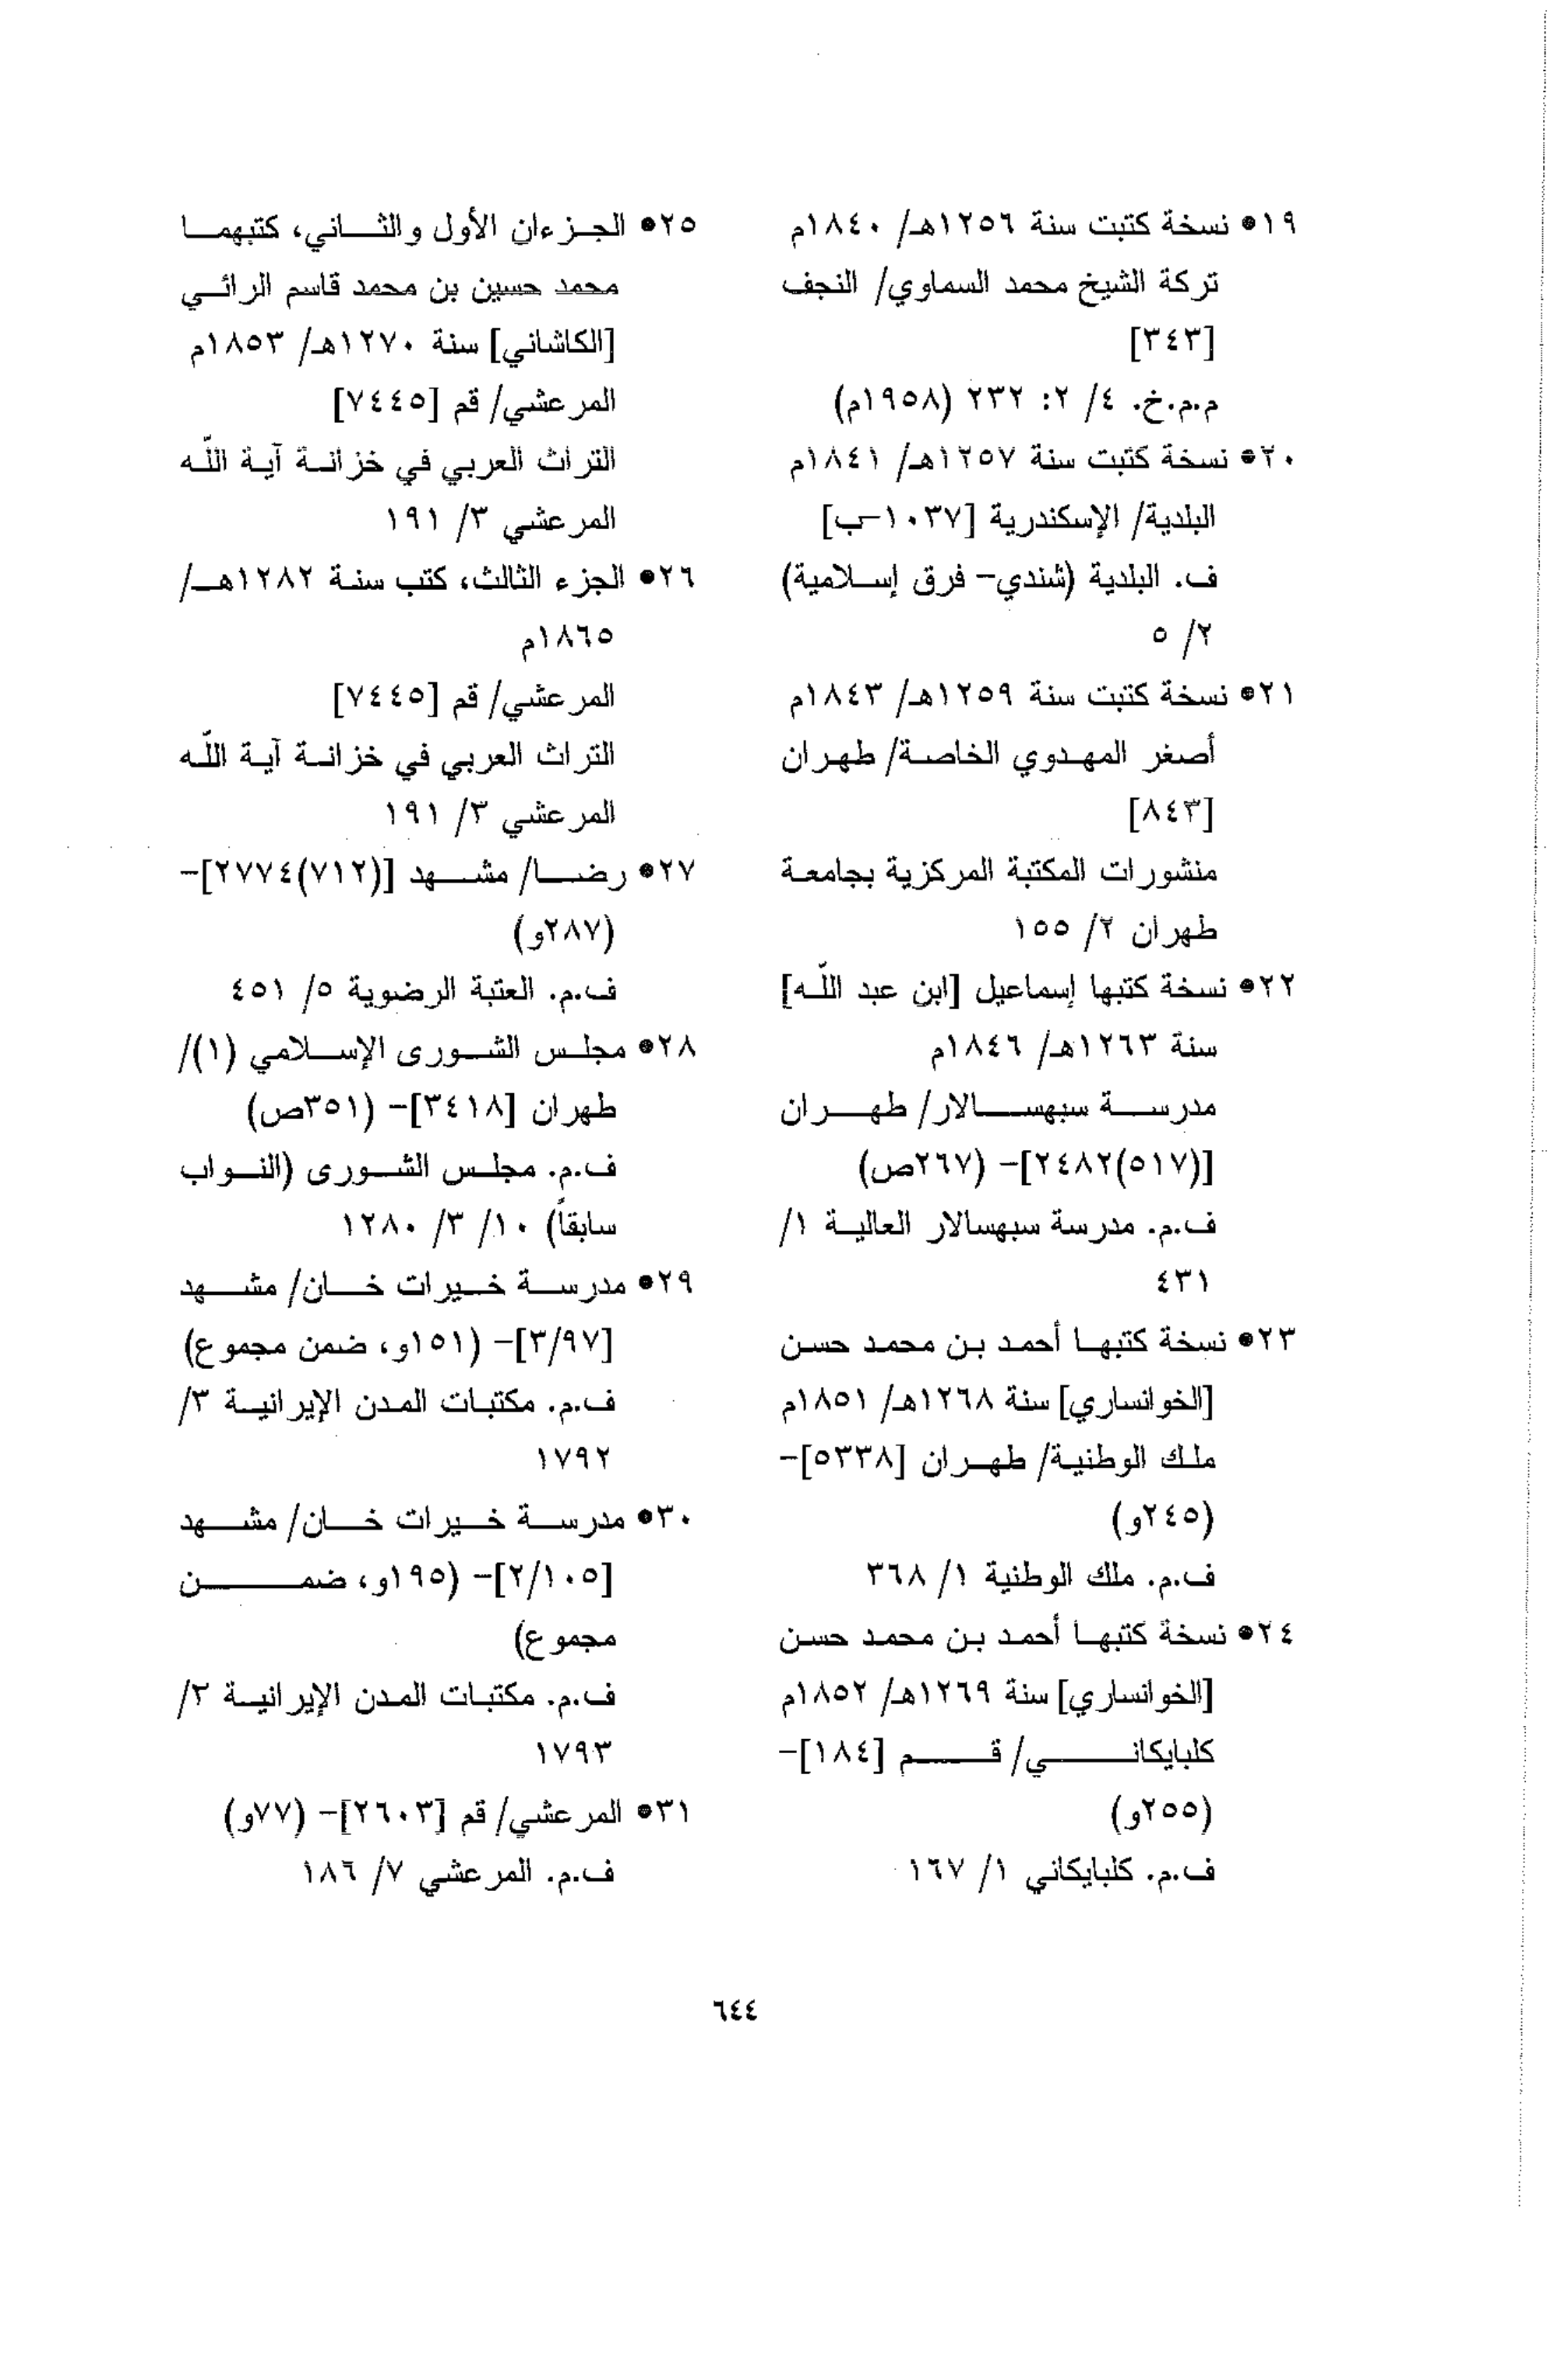 ١٩• نسخة كتبت سنة ١٢٥٦هـ/ ١٨٤٠م
تركة الشيخ محمد السماوي/ النجف
[٣٤٣]
م.م.خ. ٤/ ٢: ٢٣٢ (١٩٥٨م)
٢٠• نسخة كتبت سنة ١٢٥٧هـ/ ١٨٤١م
البلدية/ الإسكندرية [١٠٣٧-ب]
ف. البلدية (شندي- فرق إسلامية)
٢/ ٥
٢١• نسخة كتبت سنة ١٢٥٩هـ/ ١٨٤٣م
أصغر المهدوي الخاصة/ طهران
[٨٤٣]
منشورات المكتبة المركزية بجامعة
طهران ٢/ ١٥٥
٢٢• نسخة كتبها إسماعيل [ابن عبد اللّه]
سنة ١٢٦٣هـ/ ١٨٤٦م
مدرسة سبهسالار/ طهران
[(٥١٧)٢٤٨٢]- (٢٦٧ص)
ف.م. مدرسة سبهسالار العالية ١/
٤٣١
٢٣• نسخة كتبها أحمد بن محمد حسن
[الخوانساري] سنة ١٢٦٨هـ/ ١٨٥١م
ملك الوطنية/ طهران [٥٣٣٨]-
(٢٤٥و)
ف.م. ملك الوطنية ١/ ٣٦٨
٢٤• نسخة كتبها أحمد بن محمد حسن
[الخوانساري] سنة ١٢٦٩هـ/ ١٨٥٢م
كلبايكاني/ قم [١٨٤]-
(٢٥٥و)
ف.م. كلبايكاني ١/ ١٦٧
٢٥• الجزءان الأول والثاني، كتبهما
محمد حسين بن محمد قاسم الرائي
[الكاشاني] سنة ١٢٧٠هـ/ ١٨٥٣م
المرعشي/ قم [٧٤٤٥]
التراث العربي في خزانة آية اللّه
المرعشي ٣/ ١٩١
٢٦• الجزء الثالث، كتب سنة ١٢٨٢هـ/
١٨٦٥م
المرعشي/ قم [٧٤٤٥]
التراث العربي في خزانة آية اللّه
المرعشي ٣/ ١٩١
٢٧• رضا/ مشهد [(٧١٢)٢٧٧٤]-
(٢٨٧و)
ف.م. العتبة الرضوية ٥/ ٤٥١
٢٨• مجلس الشورى الإسلامي (١)/
طهران [٣٤١٨]- (٣٥١ص)
ف.م. مجلس الشورى (النواب
سابقاً) ١٠/ ٣/ ١٢٨٠
٢٩• مدرسة خيرات خان/ مشهد
[٣/٩٧]- (١٥١و، ضمن مجموع)
ف.م. مكتبات المدن الإيرانية ٣/
١٧٩٢
٣٠• مدرسة خيرات خان/ مشهد
[٢/١٠٥]- (١٩٥و، ضمن
مجموع)
ف.م. مكتبات المدن الإيرانية ٣/
١٧٩٣
٣١• المرعشي/ قم [٢٦٠٣]- (٧٧و)
ف.م. المرعشي ٧/ ١٨٦
٦٤٤